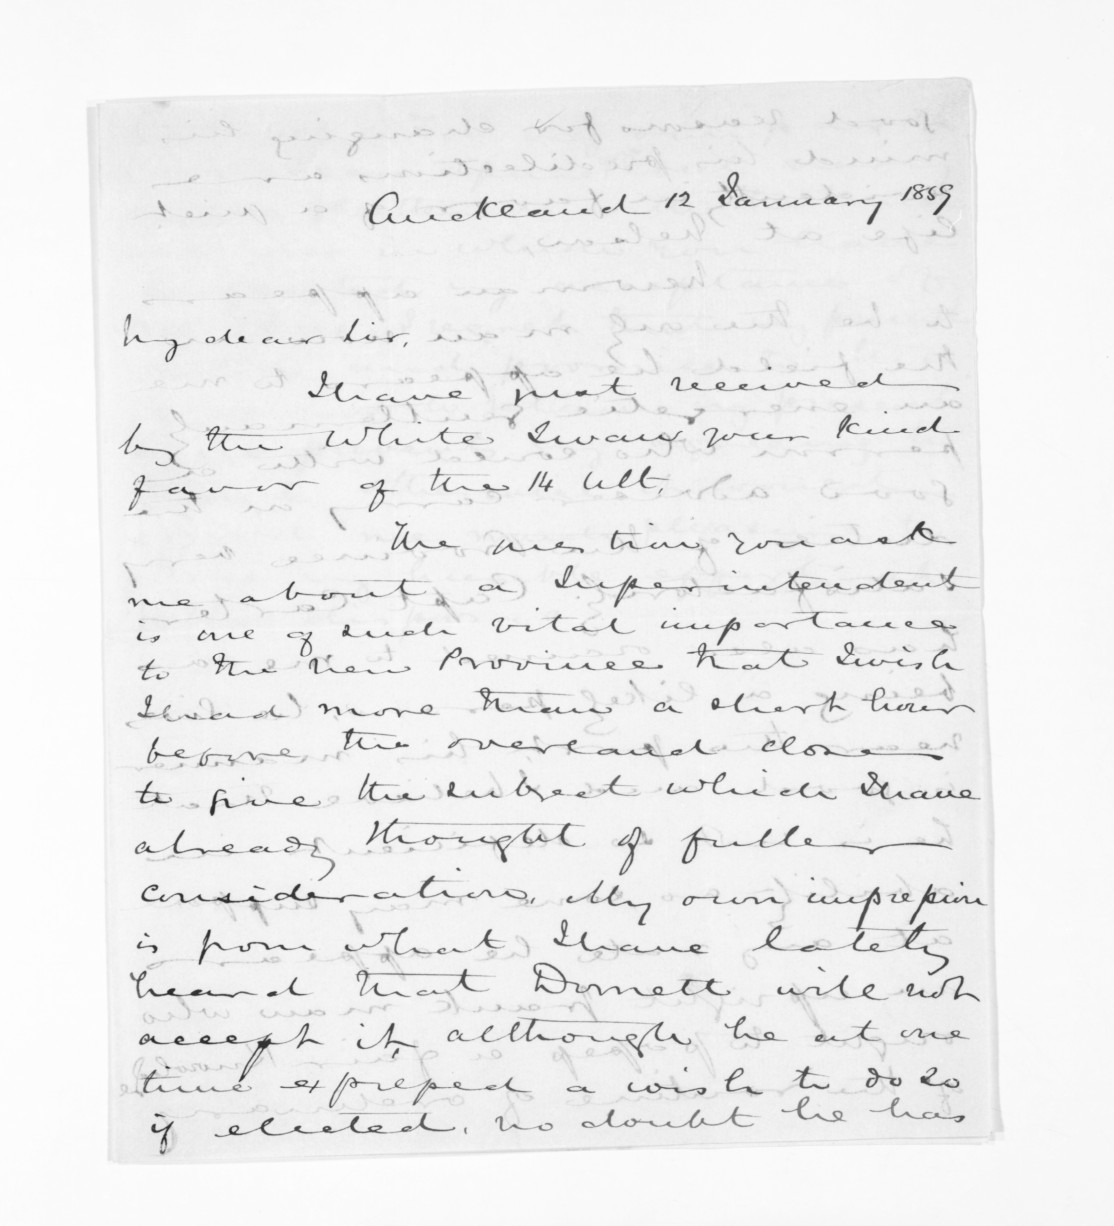 Auckland 12 January 1859
My dear Sir,
I have just received
by the White Swan your kind
favor of the 14 Ult.
The question you ask
me about a Superintendent
is one of such vital importance
to the New Province that I wish
I had more than a short hour
before the overland close
to give the subject which I have
already thought of fuller
consideration. My own impression
is from what I have lately
heard that Domett will not
accept it, although he at one
time expressed a wish to do so
if elected, no doubt he has